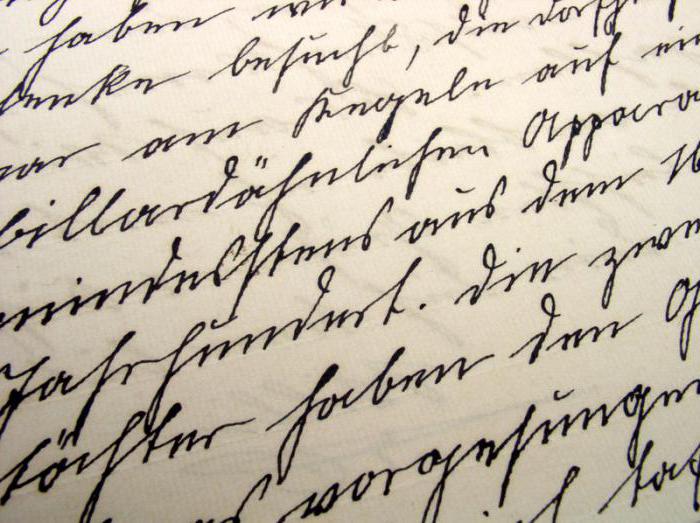 haben wir
besucht, die
war am Kegeln auf
billardähnlichen Appara
mindestens aus dem 16
Jahrhundert. Die zwe
töchter haben den G
vorgesungen